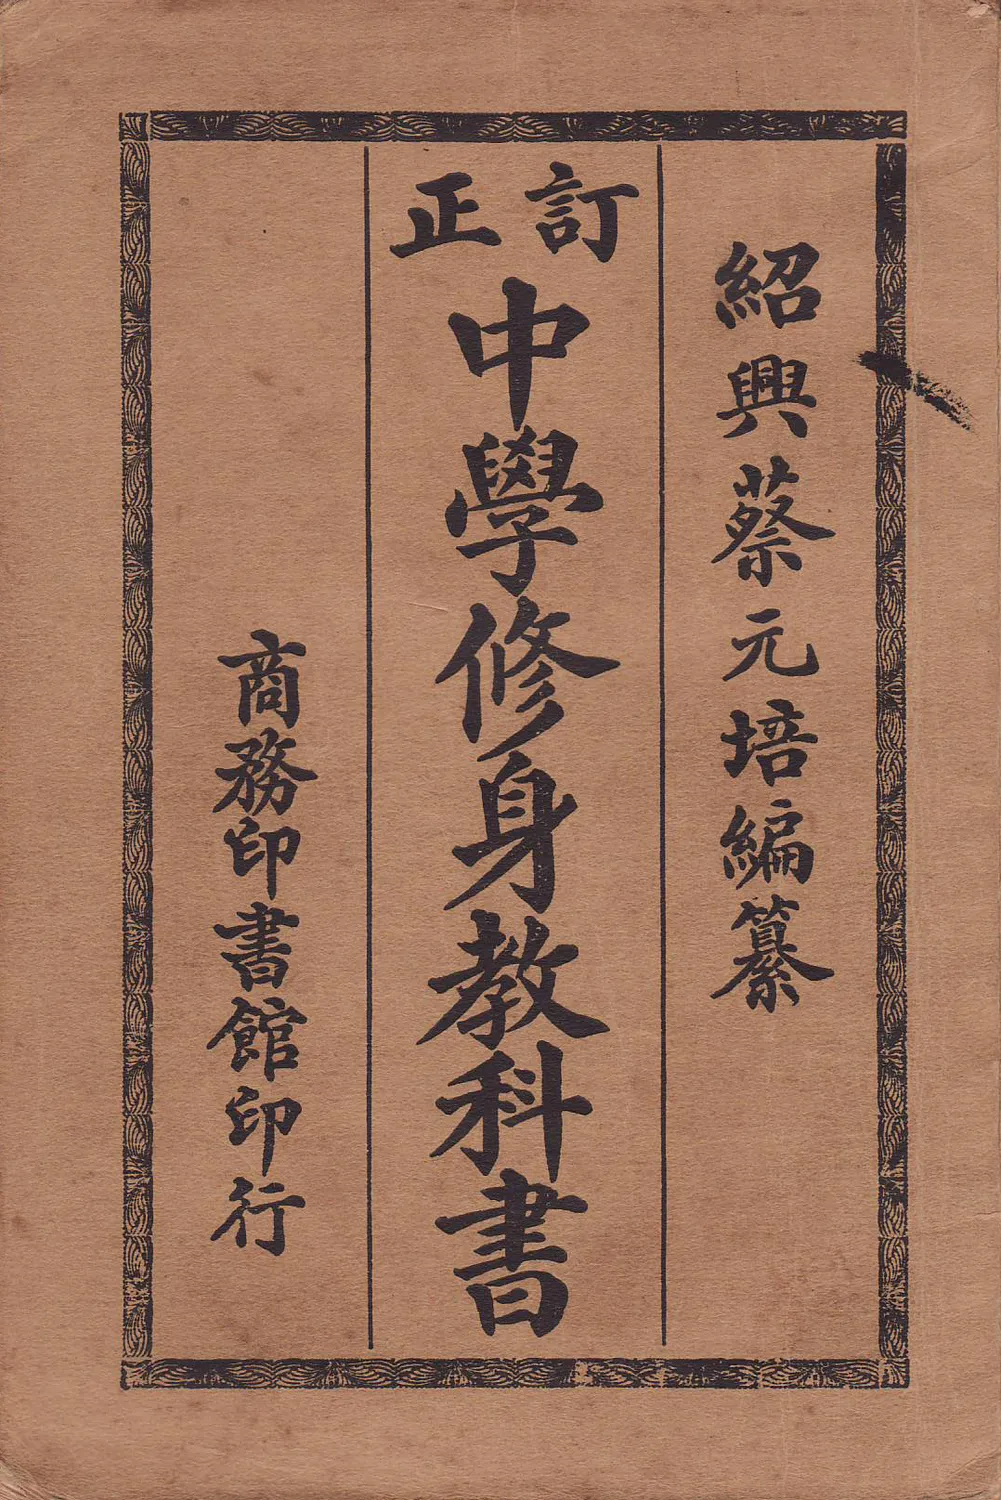 紹興蔡元培編纂
訂正
中學修身教科書
商務印書館印行